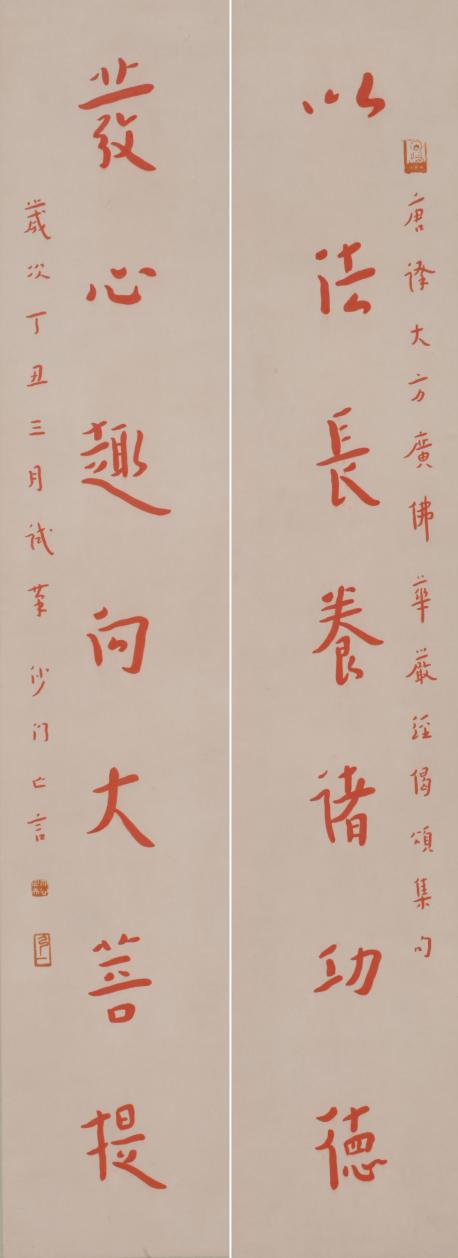 唐譯大方廣佛華嚴經偈頌集句
以法長養諸功德
發心趣向大菩提
歲次丁丑三月試筆沙門亡言